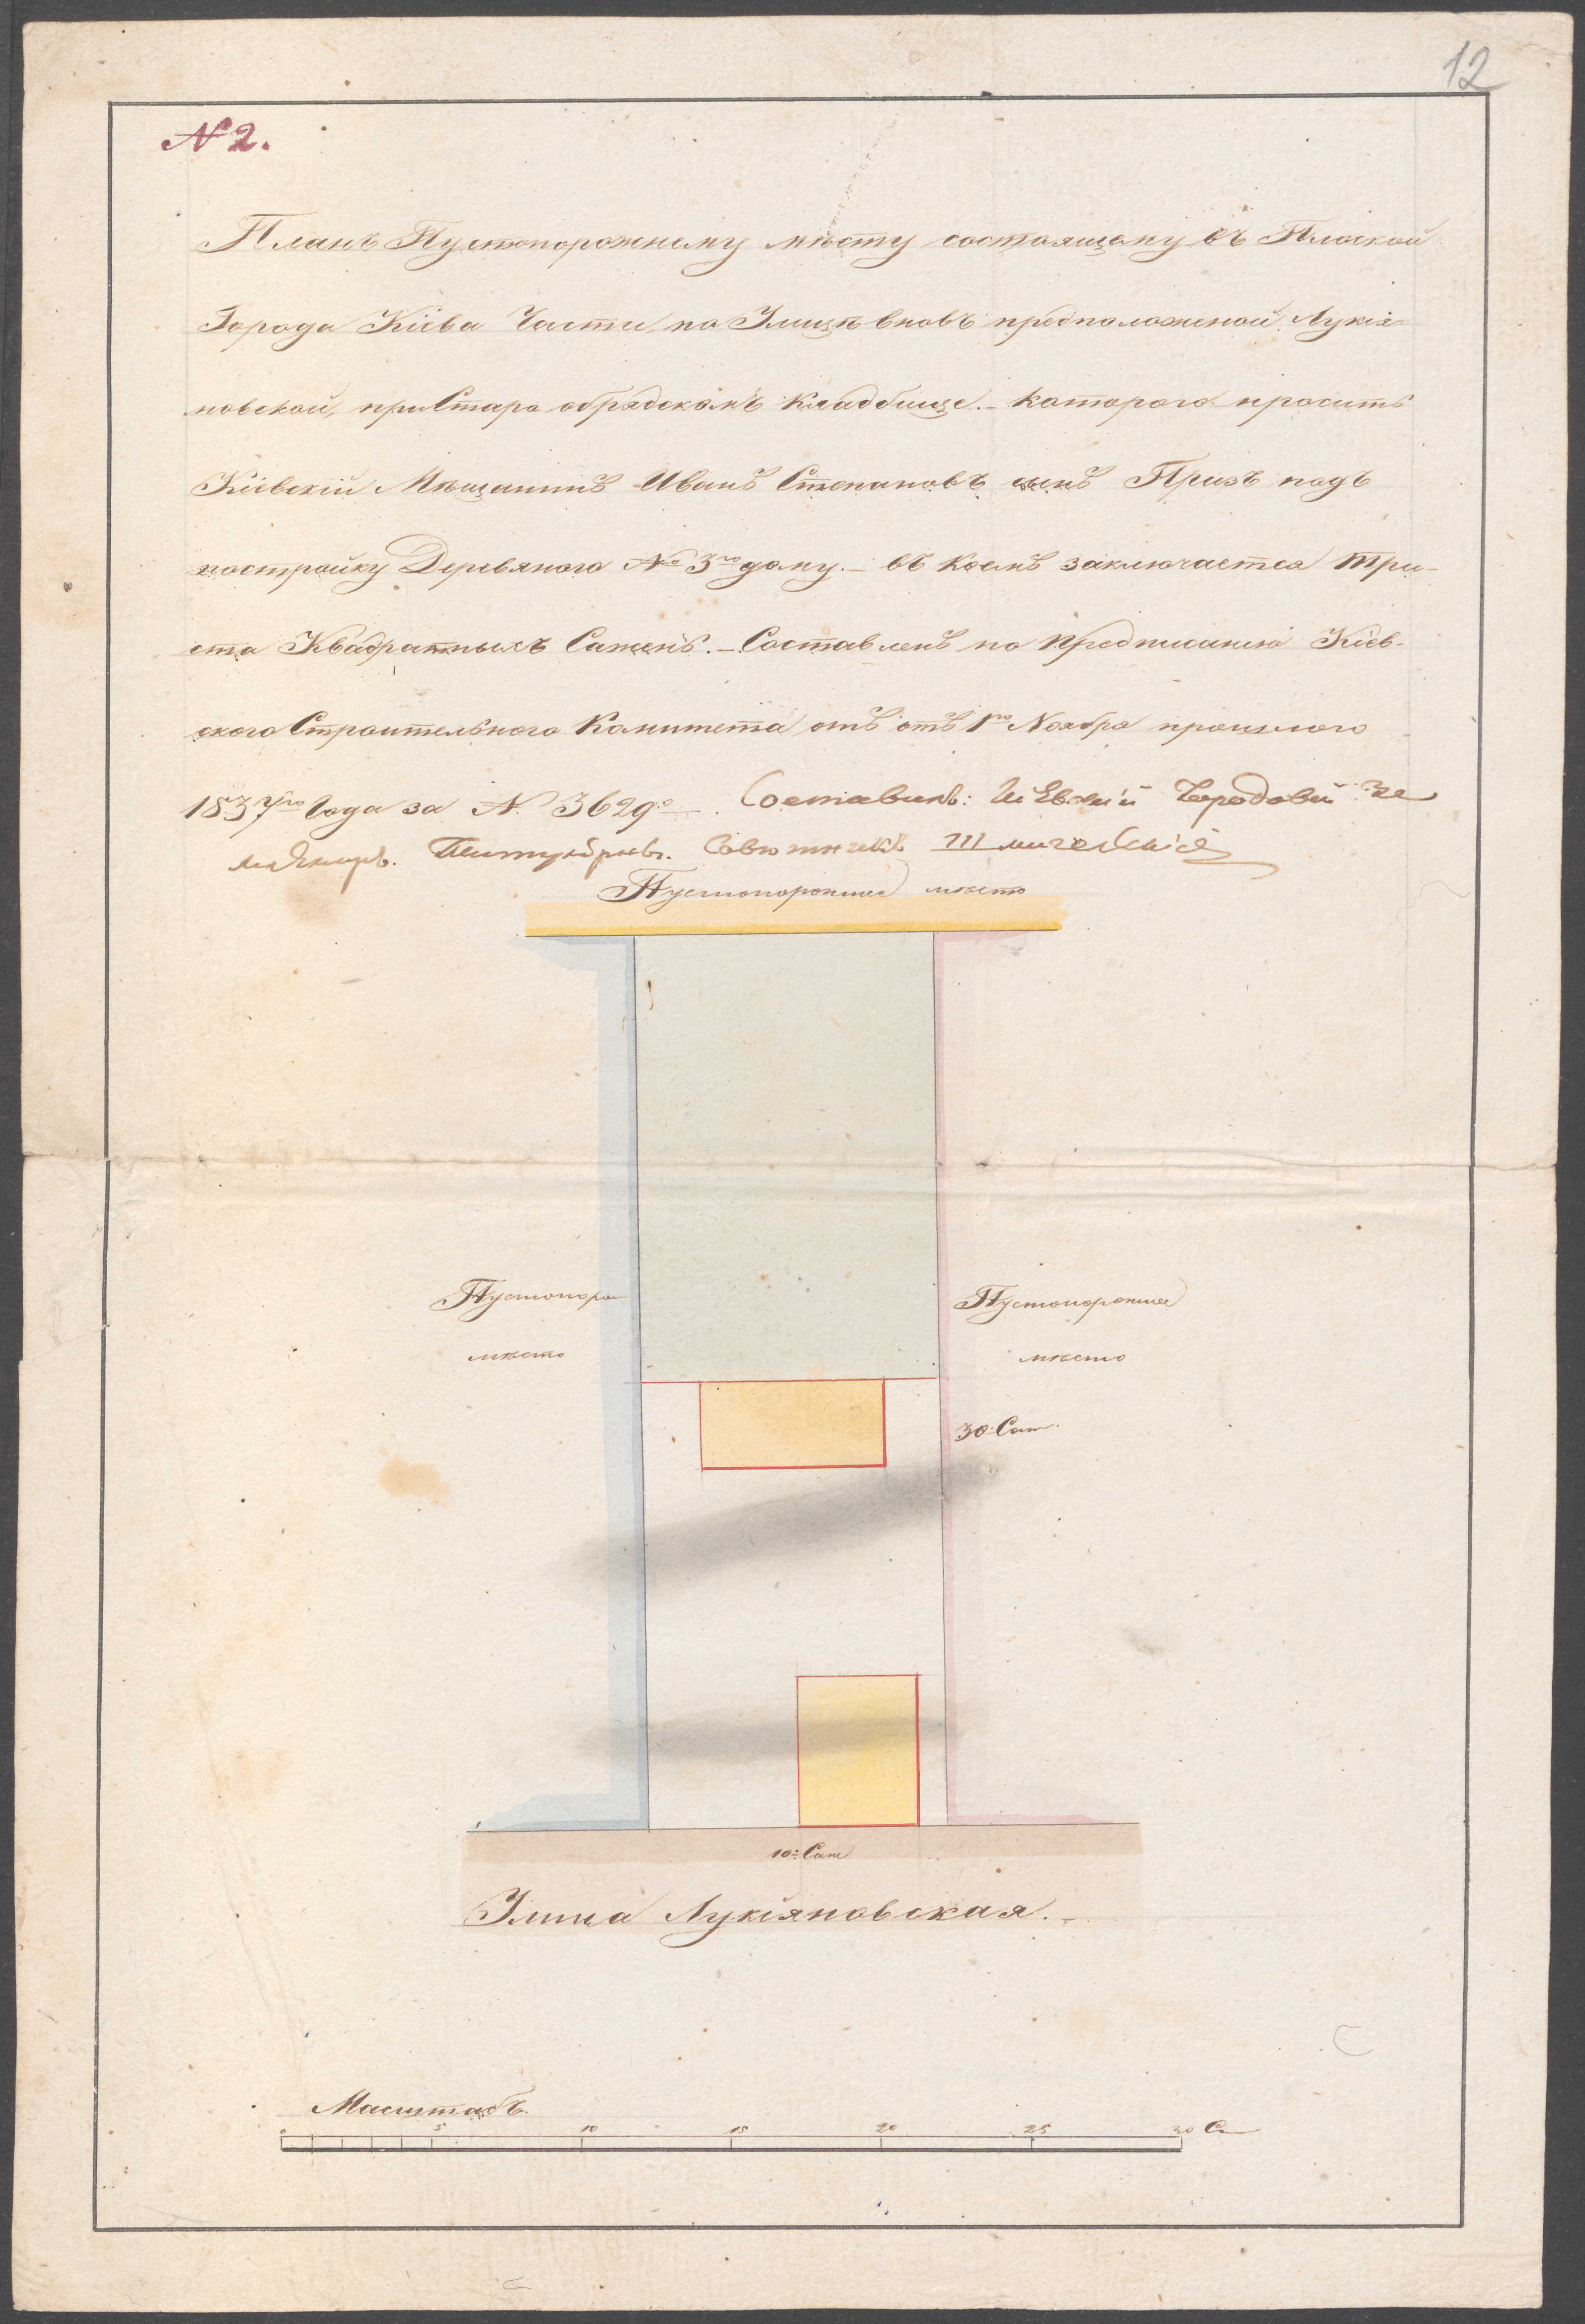 12
№ 2.
Планъ Пустопорожнему мѣсту состоящему въ Плоской
Города Кіева Части, по Улицѣ вновь предположеной Лукія-
новской, при Старо обрядскомъ Кладбище. - которого проситъ
Кіевскій Мѣщанинъ Иванъ Степановъ сынъ подъ
постройку Деревяного № 3го дому. - въ коемъ заключается три-
ста Квадратныхъ Сажень. - Составленъ по предписанію Кіев-
ского Строительного Комитета отъ отъ 1го Ноября прошлого
1837го Года за № 3629. Составилъ: Кіевскій Городовой Зе
млемѣръ.
Пустопорожнее мѣсто
Пустопорож
мѣсто
Пустопорожнее
мѣсто
30 Саж.
10 Саж
Улица Лукіяновская.
Масштабъ.
0 5 10 15 20 25 30 Са